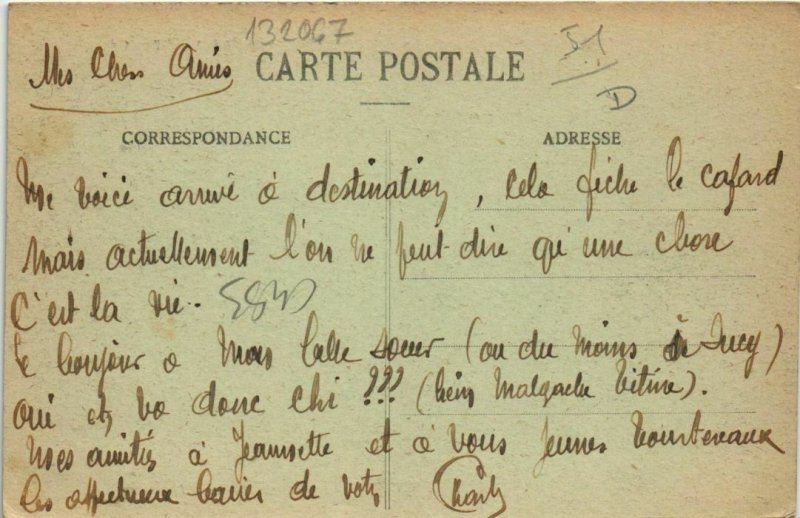 132067
51
D
Mes Chers Amis
CARTE POSTALE
CORRESPONDANCE
ADRESSE
Me voici arrivé à destination, cela fiche le cafard
mais actuellement l'on ne peut dire qu'une chose
C'est la vie.
le bonjour à Mons belle soeur (ou du moins Lucy)
oui et va donc chi ??? (hein Malgache bitume).
mes amitiés à Jeannette et à vous jeunes tourtereaux
les affectueux baisers de votre